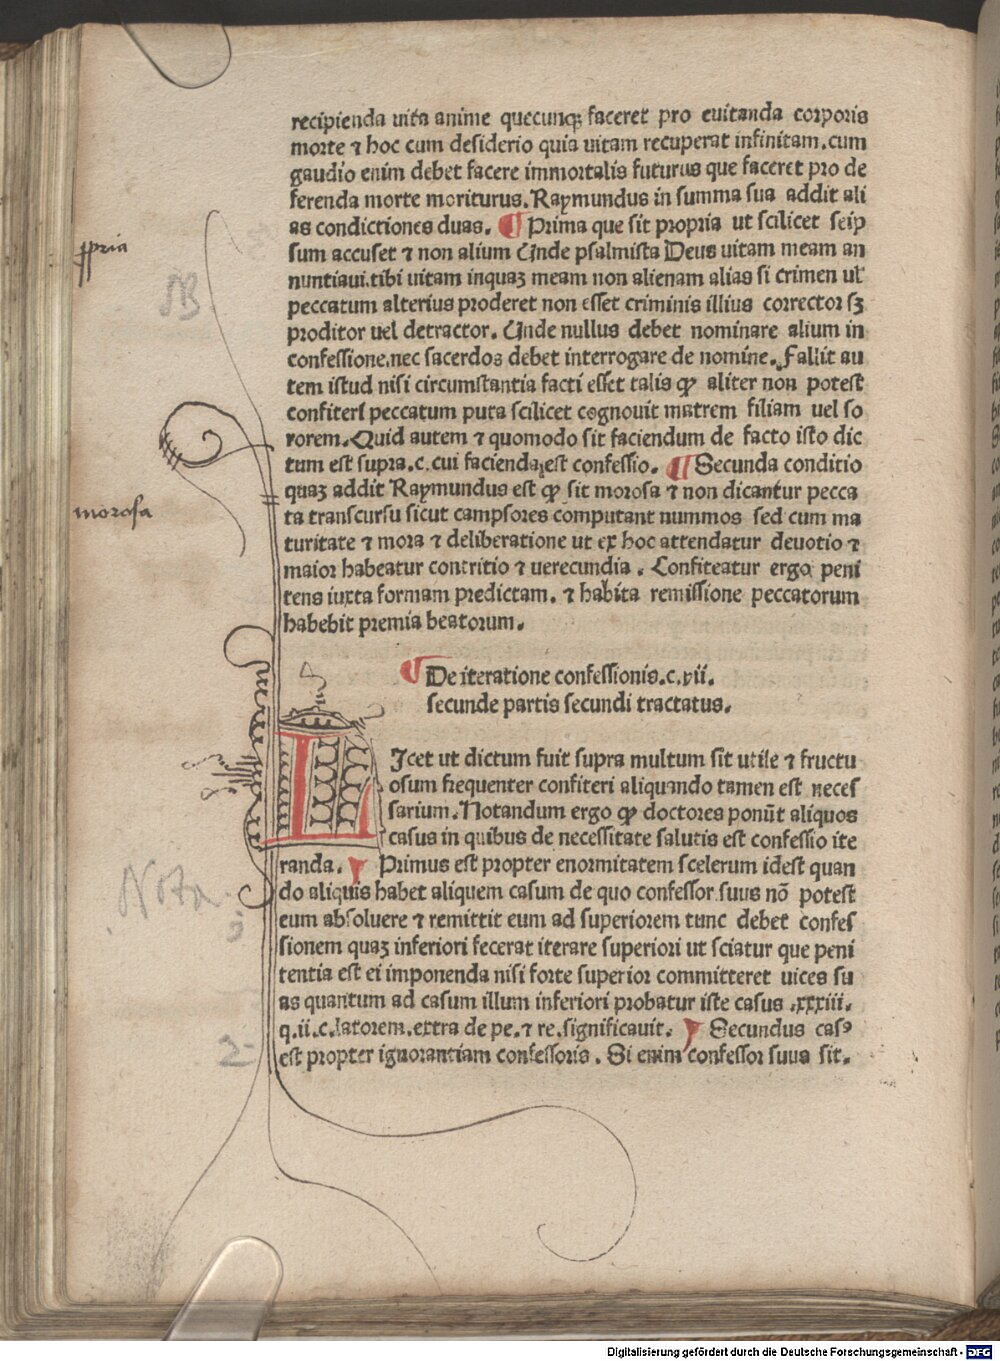 recipienda uita anime quecunqꝫ faceret pro euitanda corporis
morte ⁊ hoc cum desiderio quia uitam recuperat infinitam.cum
gaudio enim debet facere immortalis futurus que faceret pro de
ferenda morte moriturus. Raymundus in summa sua addit ali
as condictiones duas. ¶ Prima que sit propria ut scilicet seip
sum accuset ⁊ non alium Unde psalmista Deus uitam meam an
nuntiaui.tibi uitam inquaꝫ meam non alienam alias si crimen ul'
peccatum alterius proderet non esset criminis illius corrector sꝫ
proditor uel detractor. Unde nullus debet nominare alium in
confessione.nec sacerdos debet interrogare de nomine. Fallit au
tem istud nisi circumstantia facti esset talis ꝙ aliter non potest
confiteri peccatum puta scilicet cognouit matrem filiam uel so
rorem. Quid autem ⁊ quomodo sit faciendum de facto isto dic
tum est supra.c.cui facienda est confessio. ¶ Secunda conditio
quaꝫ addit Raymundus est ꝙ sit morosa ⁊ non dicantur pecca
ta transcursu sicut campsores computant nummos sed cum ma
turitate ⁊ mora ⁊ deliberatione ut ex hoc attendatur deuotio ⁊
maior habeatur contritio ⁊ uerecundia. Confiteatur ergo peni
tens iuxta formam predictam. ⁊ habita remissione peccatorum
habebit premia beatorum.
ꝓpria
NB
morosa
¶ De iteratione confessionis.c.xii.
secunde partis secundi tractatus.
LIcet ut dictum fuit supra multum sit utile ⁊ fructu
osum frequenter confiteri aliquando tamen est neces
sarium. Notandum ergo ꝙ doctores ponūt aliquos
casus in quibus de necessitate salutis est confessio ite
randa. Primus est propter enormitatem scelerum idest quan
do aliquis habet aliquem casum de quo confessor suus nō potest
eum absoluere ⁊ remittit eum ad superiorem tunc debet confes
sionem quaꝫ inferiori fecerat iterare superiori ut sciatur que peni
tentia est ei imponenda nisi forte superior committeret uices su
as quantum ad casum illum inferiori probatur iste casus .xxxiii.
q.ii.c.latorem.extra de pe.⁊ re.significauit. Secundus casꝰ
est propter ignorantiam confessoris. Si enim confessor suus sit.
Nota
2
Digitalisierung gefördert durch die Deutsche Forschungsgemeinschaft - DFG